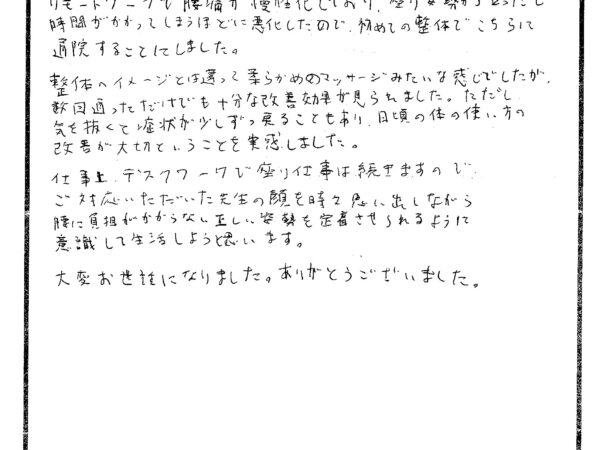 リモートワークで腰痛が慢性化しており、座り姿勢から
時間がかかってしまうほどに悪化したので、初めての整体でこちらに
通院することにしました。
整体へイメージとは違って柔らかめのマッサージみたいな感じでしたが、
数回通っただけでも十分な改善効果が見られました。ただし
気を抜くと症状が少しずつ戻ることもあり、日頃の体の使い方の
改善が大切ということを実感しました。
仕事上、デスクワークで座り仕事は続きますので
ご対応いただいた先生の顔を時々思い出しながら
腰に負担がかからない正しい姿勢を定着させられるように
意識して生活しようと思います。
大変お世話になりました。ありがとうございました。